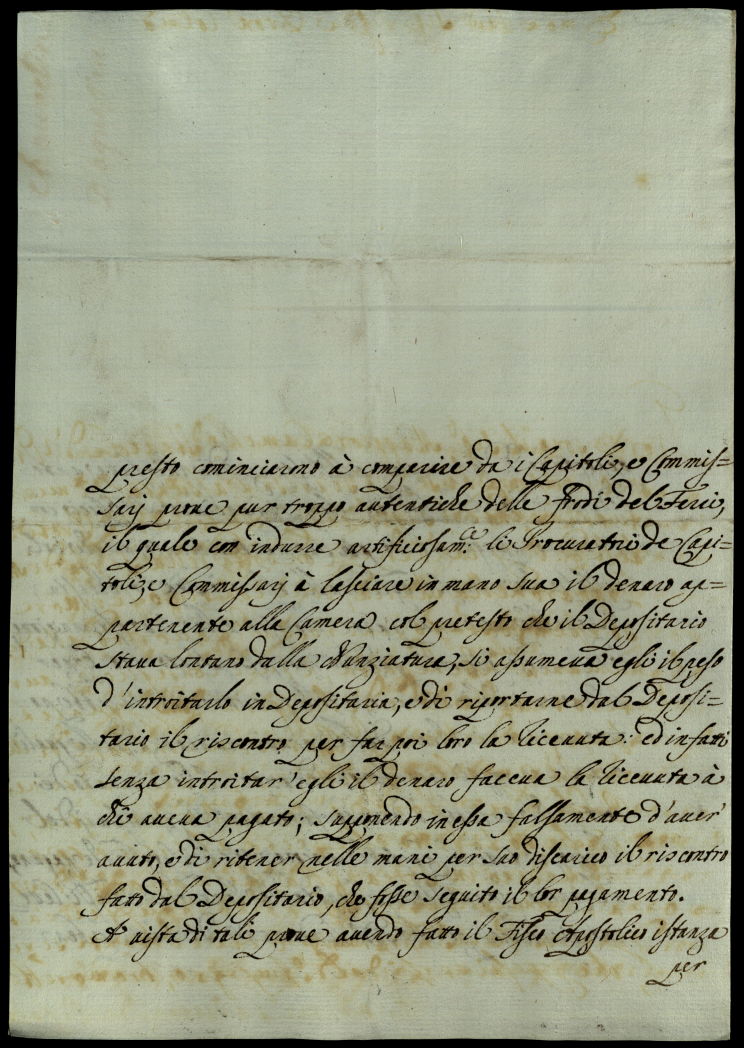 presto cominciarono à comparire da i Capitoli, e Commis=
sarij prove pur troppo autentiche delle frodi del Ferri,
il quale con indurre artificiosam.te li Procuratori de Capi=
toli, e Commissarij à lasciare in mano sua il denaro ap=
partenente alla Camera col pretesto che il Depositario
stava lontano dalla Nunziatura, si assumeva egli il peso
d'introitarlo in Depositaria, e di riportarne dal Deposi=
tario il riscontro per far poi loro la ricevuta: ed infatti
senza introitar' egli il denaro faceva la ricevuta à
chi aveva pagato; supponendo in essa falsamente d'aver'
avuto, e di ritener nelle mani per suo discarico il riscontro
fatto dal Depositario, che fosse seguito il lor pagamento.
A vista di tali prove avendo fatto il Fisco Apostolico istanza
per